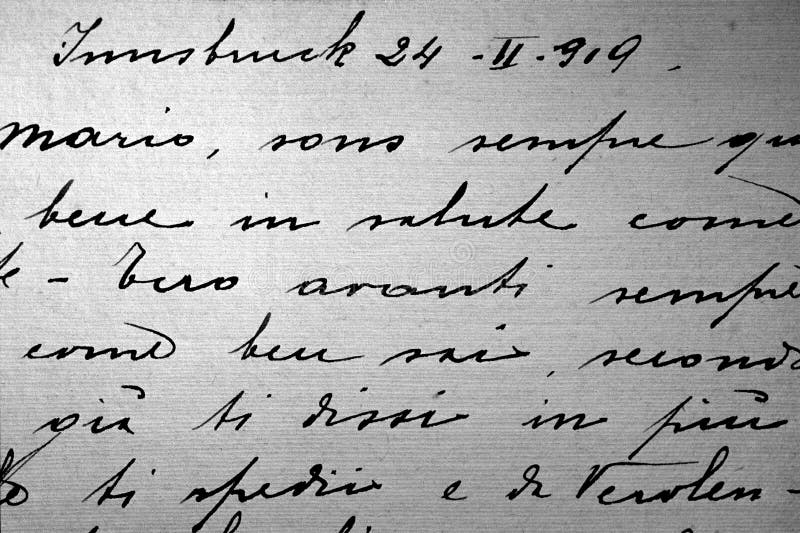 Innsbruck 24 - II - 919.
Mario, sono sempre qu
bene in salute come
te - Tiro avanti sempre
come ben sai, second
già ti dissi in più
ti spedii e da Verolen-